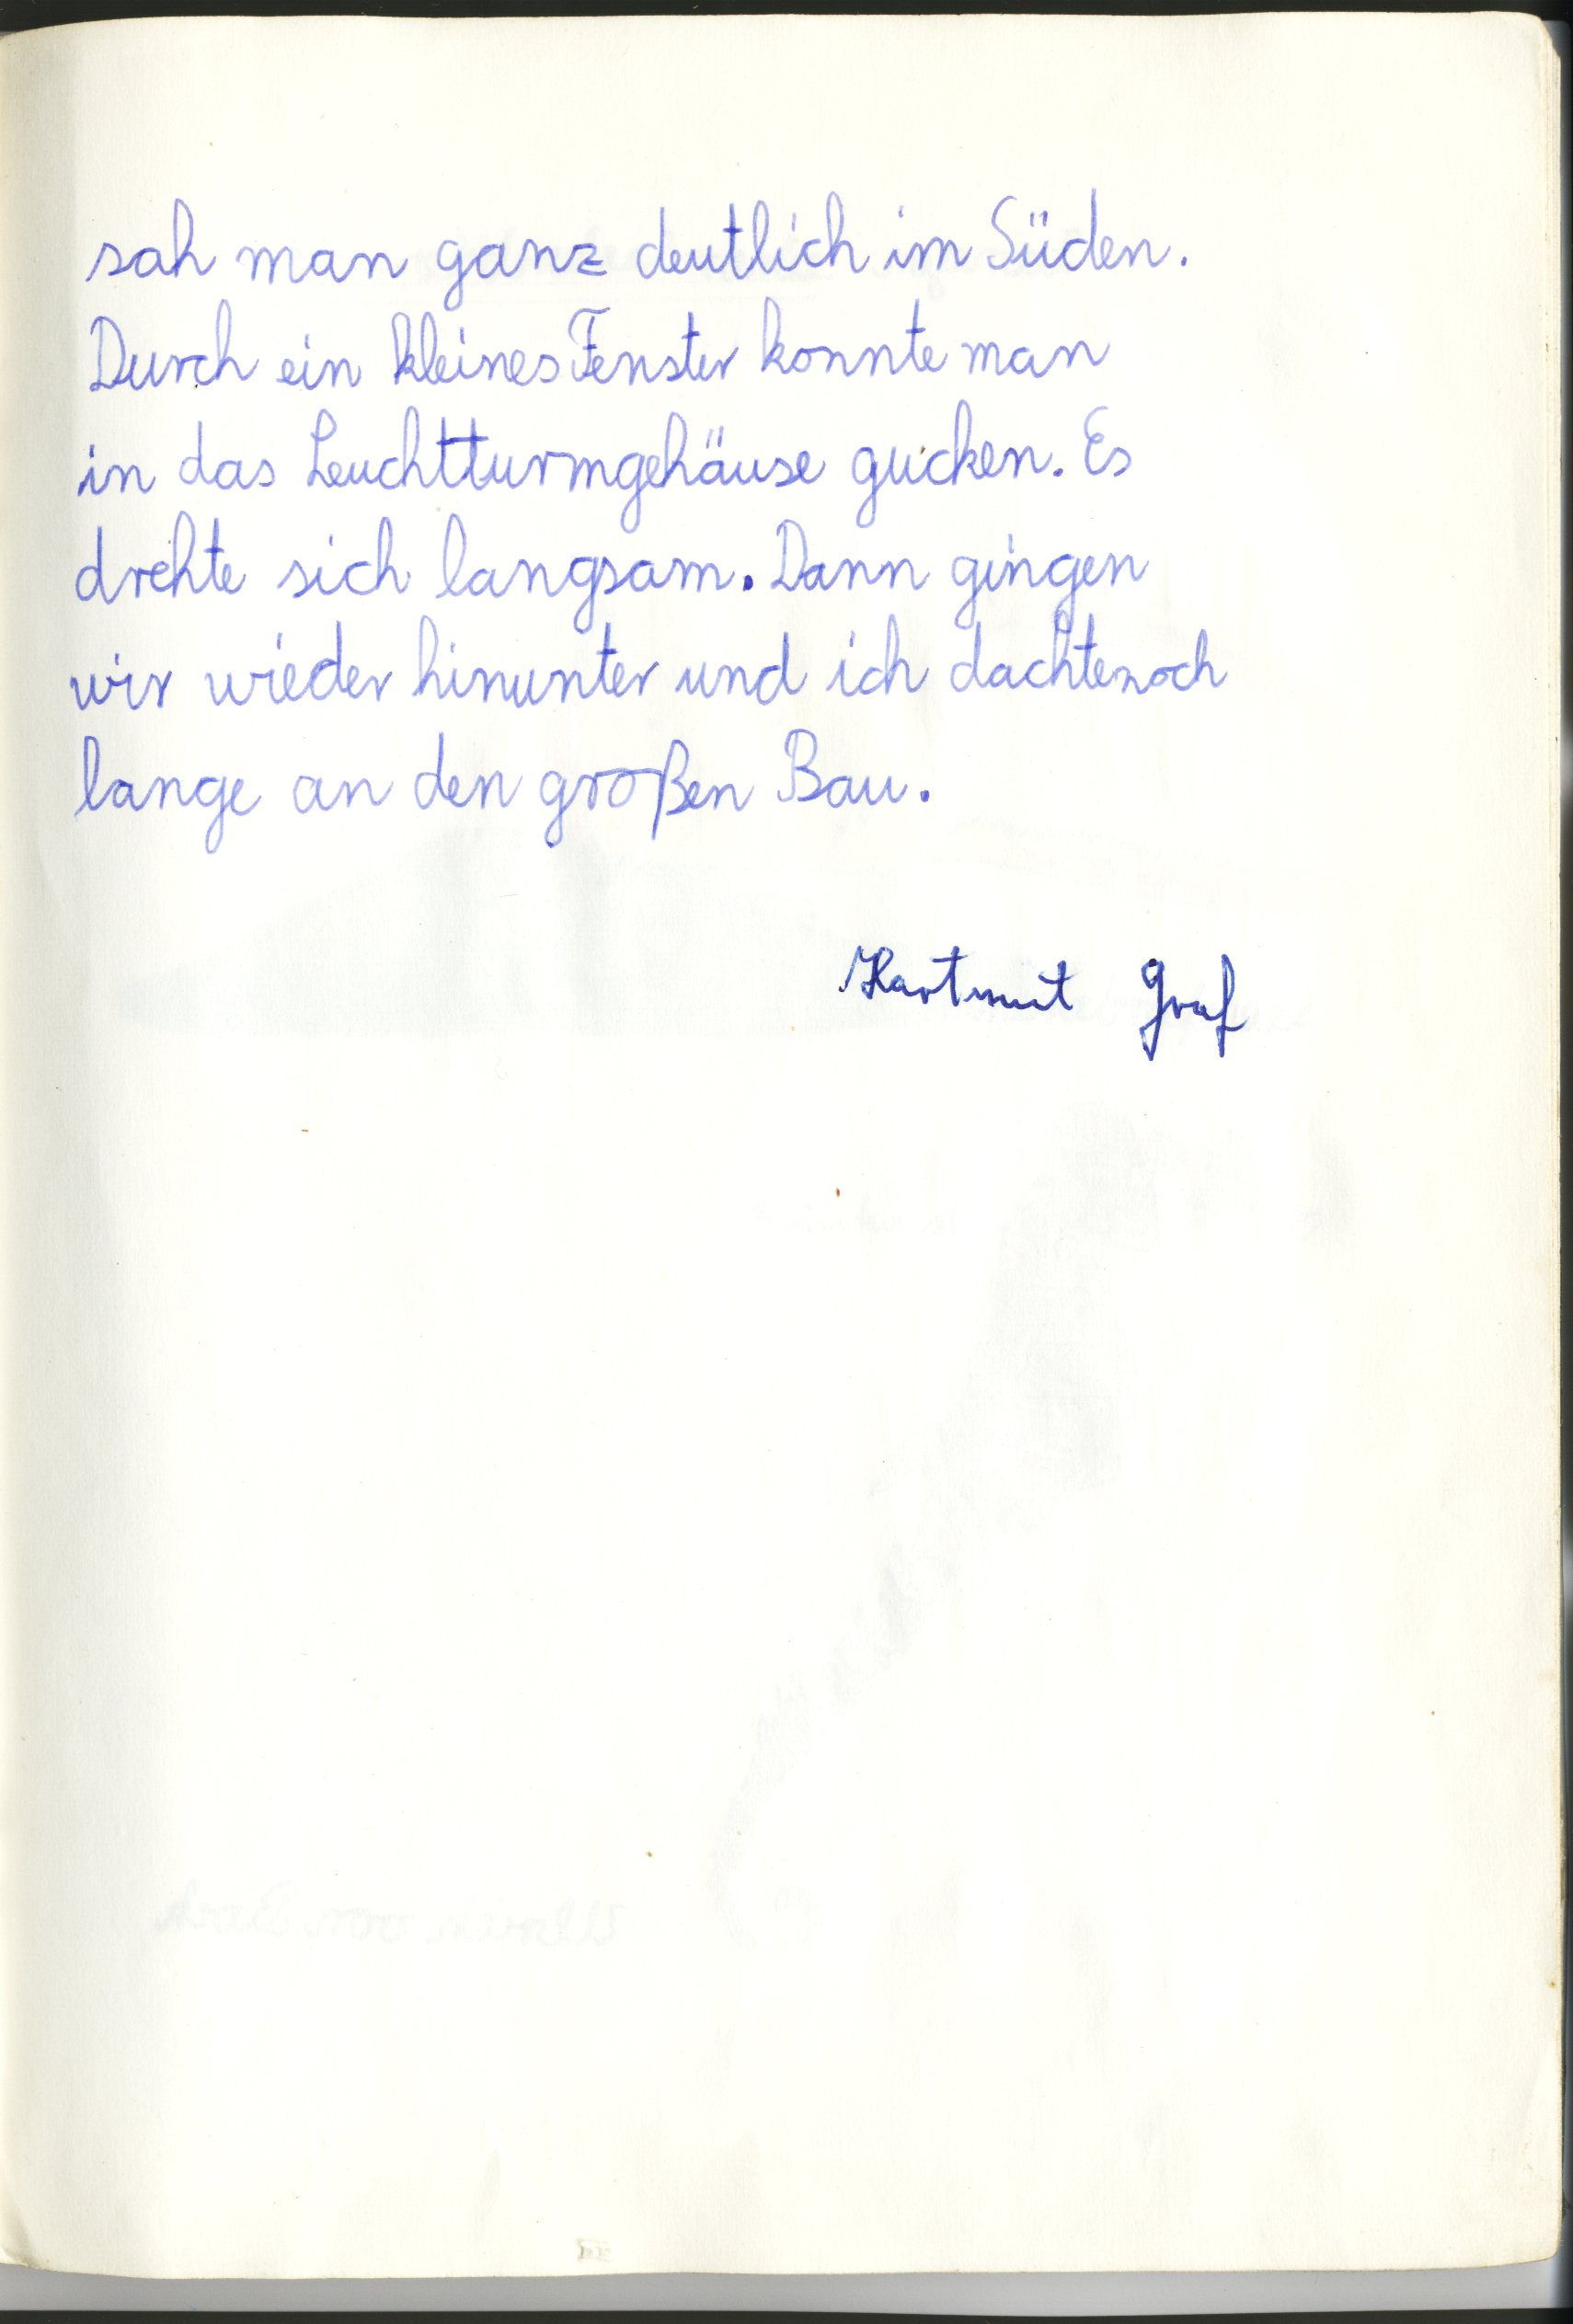 sah man ganz deutlich im Süden.
Durch ein kleines Fenster konnte man
in das Leuchtturmgehäuse gucken. Es
drehte sich langsam. Dann gingen
wir wieder hinunter und ich dachte noch
lange an den großen Bau.
Hartmut Graf